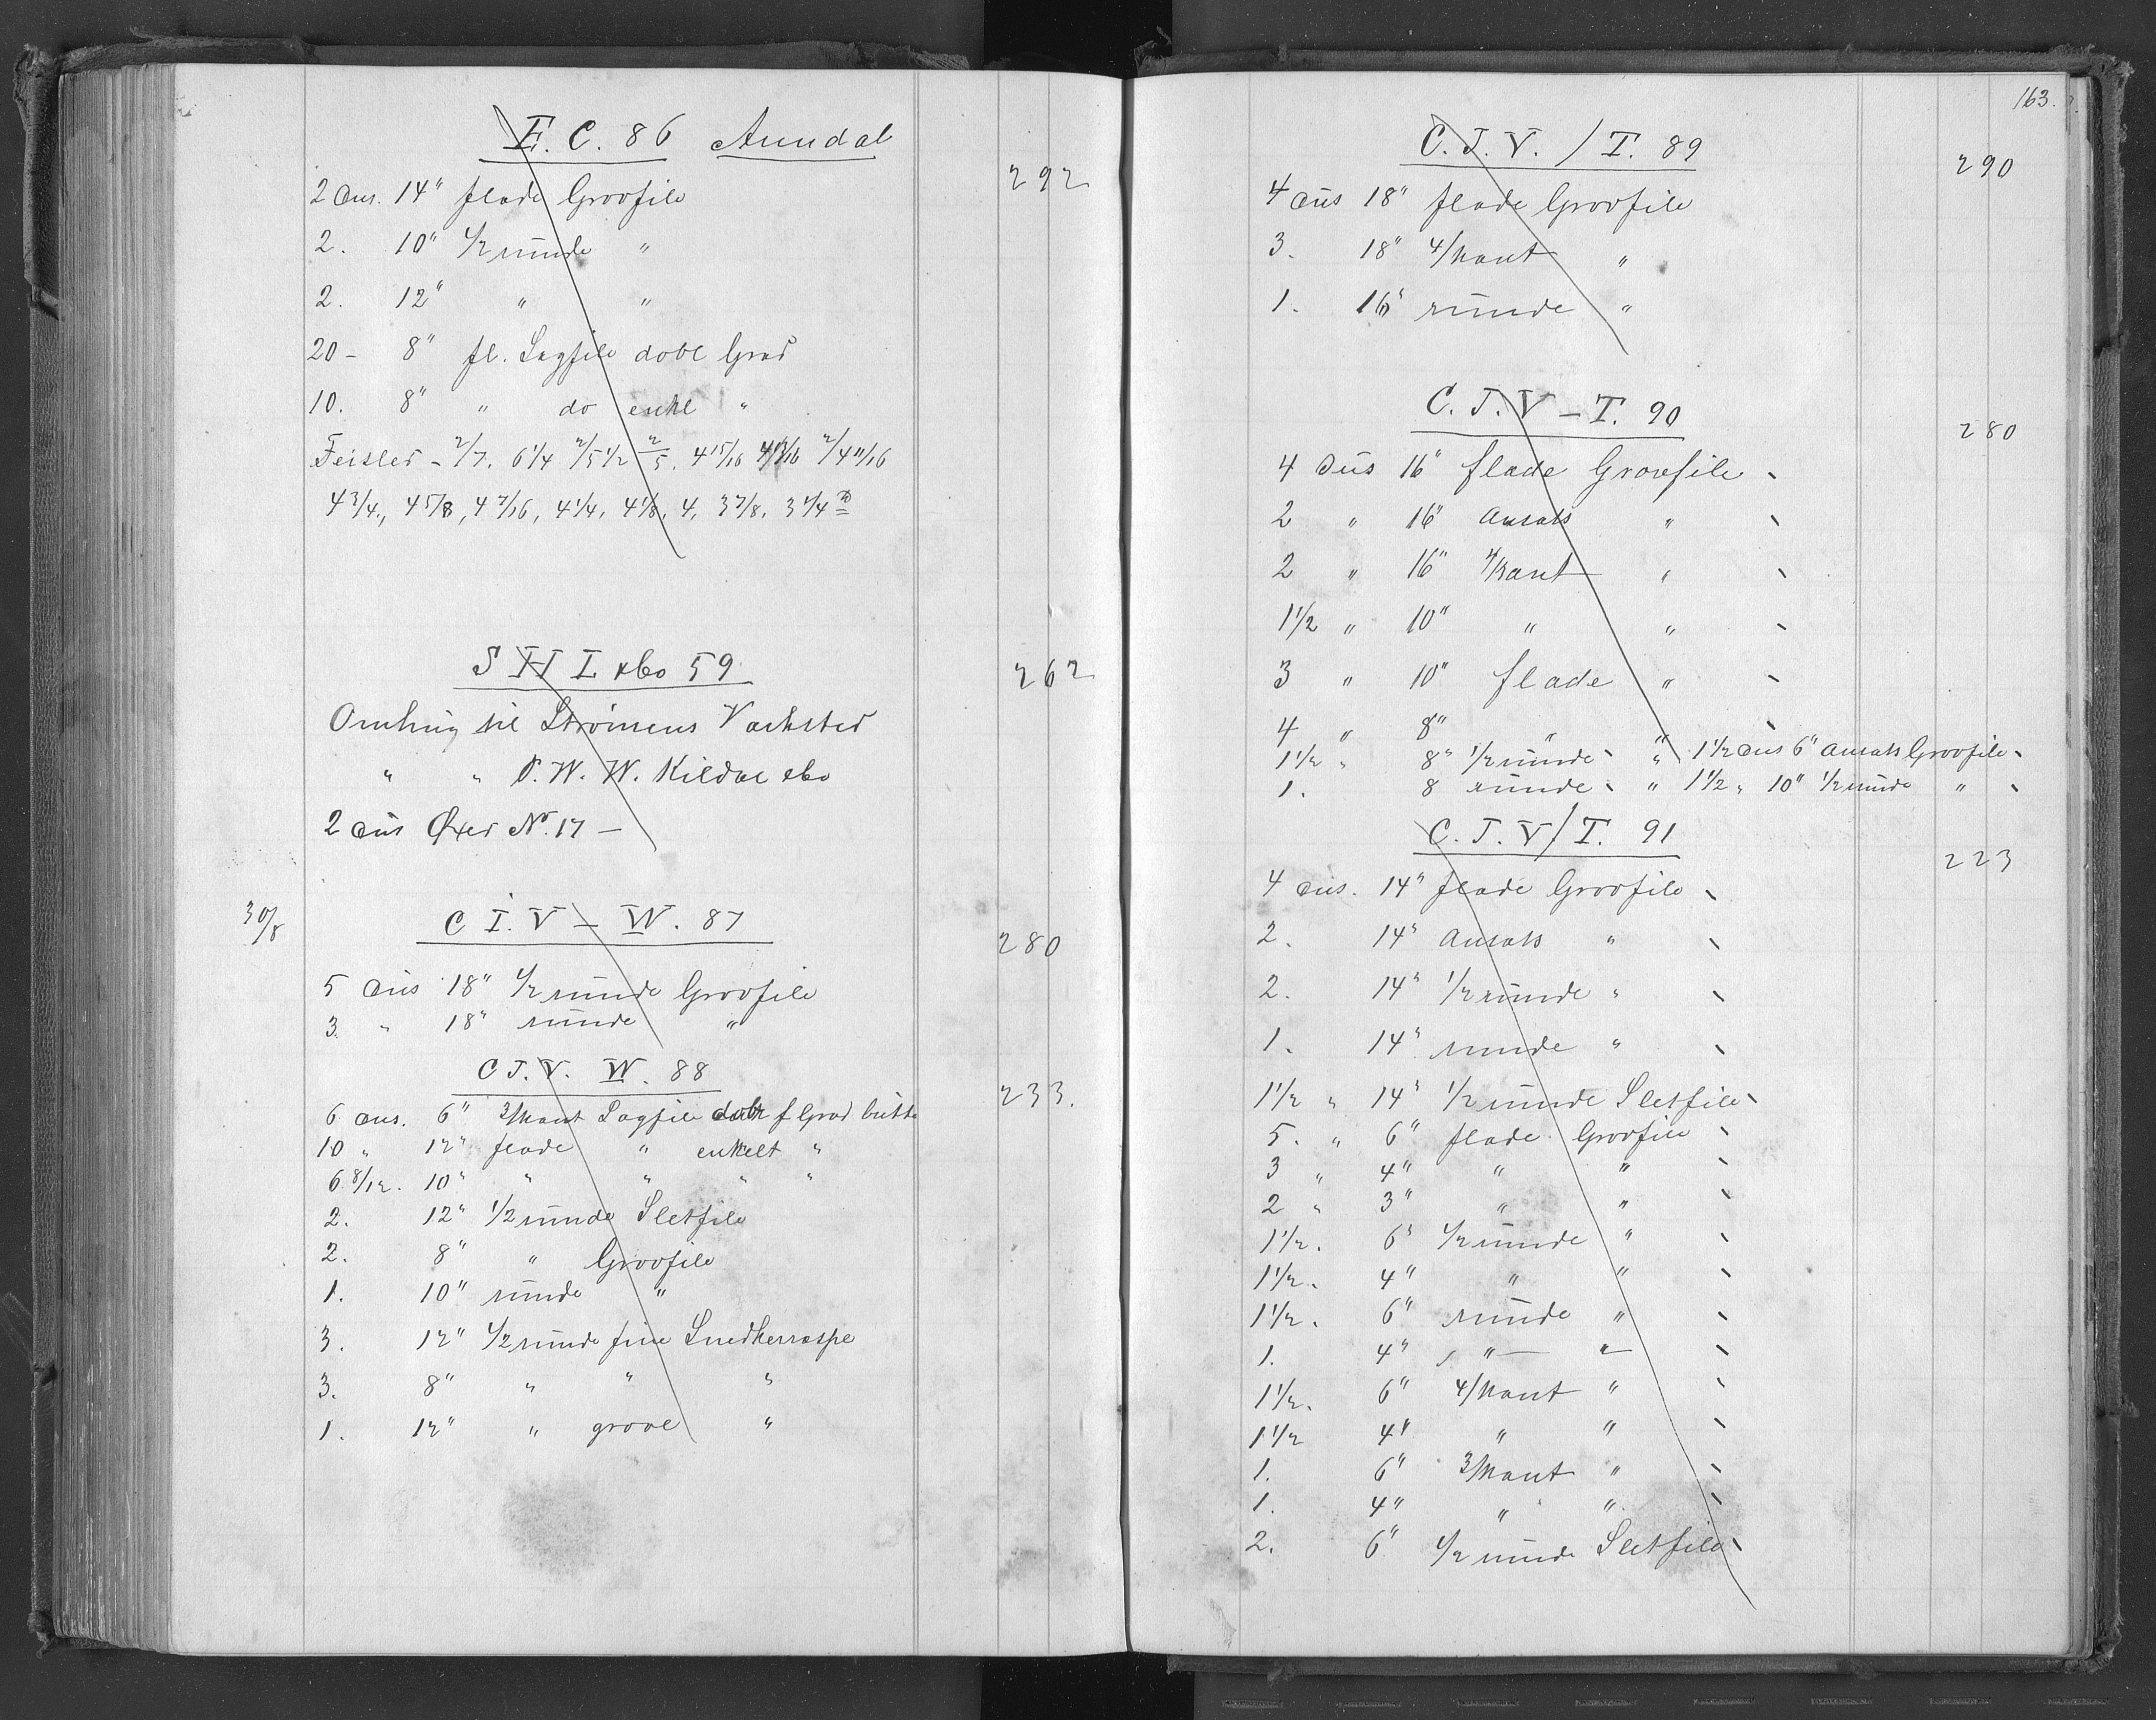 E. C. 86 Arendal
292
2 dus. 14" flade Grovfile
2. 10" 1/2 runde "
2. 12" " "
20 - 8" fl. Sagfile dobl Grad
10. 8" " do enkl "
Feisler - 2/7. 6 1/4 2/5 1/2 2/5. 4 15/16 4 13/16 2/4 11/16
4 3/4., 4 5/8, 4 7/16, 4 1/4, 4 1/8, 4, 3 7/8. 3 1/4
S H L 59
262
Omkring til Strømens Værksted
" " P. W. W. Kildal
2 dus Øxer No. 17 -
30/8
C I. V - W. 87
280
5 dus 18" 1/2 runde Grovfile
3. " 18" runde "
C J. V. W. 88
233.
6 dus. 6" 3/kant Sagfile dobl f Grad butte
10 " 12" flade " enkelt "
6 8/12. 10" " " " "
2. 12" 1/2 runde Sletfile
2. 8" " Grovfile
1. 10" runde "
3. 12" 1/2 runde fine Snedkerraspe
3. 8" " " "
1. 12" " grove "
163.
C. J. V. / T. 89
290
4 dus 18" flade Grovfile
3. 18" 4/kant "
1. 16" runde "
C. J. V - T. 90
280
4 dus 16" flade Grovfile
2 " 16" Ansats "
2 " 16" 4/kant "
1 1/2 " 10" " "
3 " 10" flade "
4 " 8" " "
1 1/2 " 8" 1/2 runde " 1 1/2 dus 6" Ansats Grovfile
1. 8 runde " 1 1/2 " 10" 1/2 runde "
C. J. V / T. 91
223
4 dus. 14" flade Grovfile
2. 14" Ansats "
2. 14" 1/2 runde "
1. 14" runde "
1 1/2 " 14" 1/2 runde Sletfile
5. " 6" flade Grovfile
3 " 4" " "
2 " 3" " "
1 1/2. 6" 1/2 runde "
1 1/2. 4" " "
1 1/2. 6" runde "
1. 4" " "
1 1/2. 6" 4/kant "
1 1/2 4" " "
1. 6" 3/kant "
1. 4" " "
2. 6" 1/2 runde Sletfile